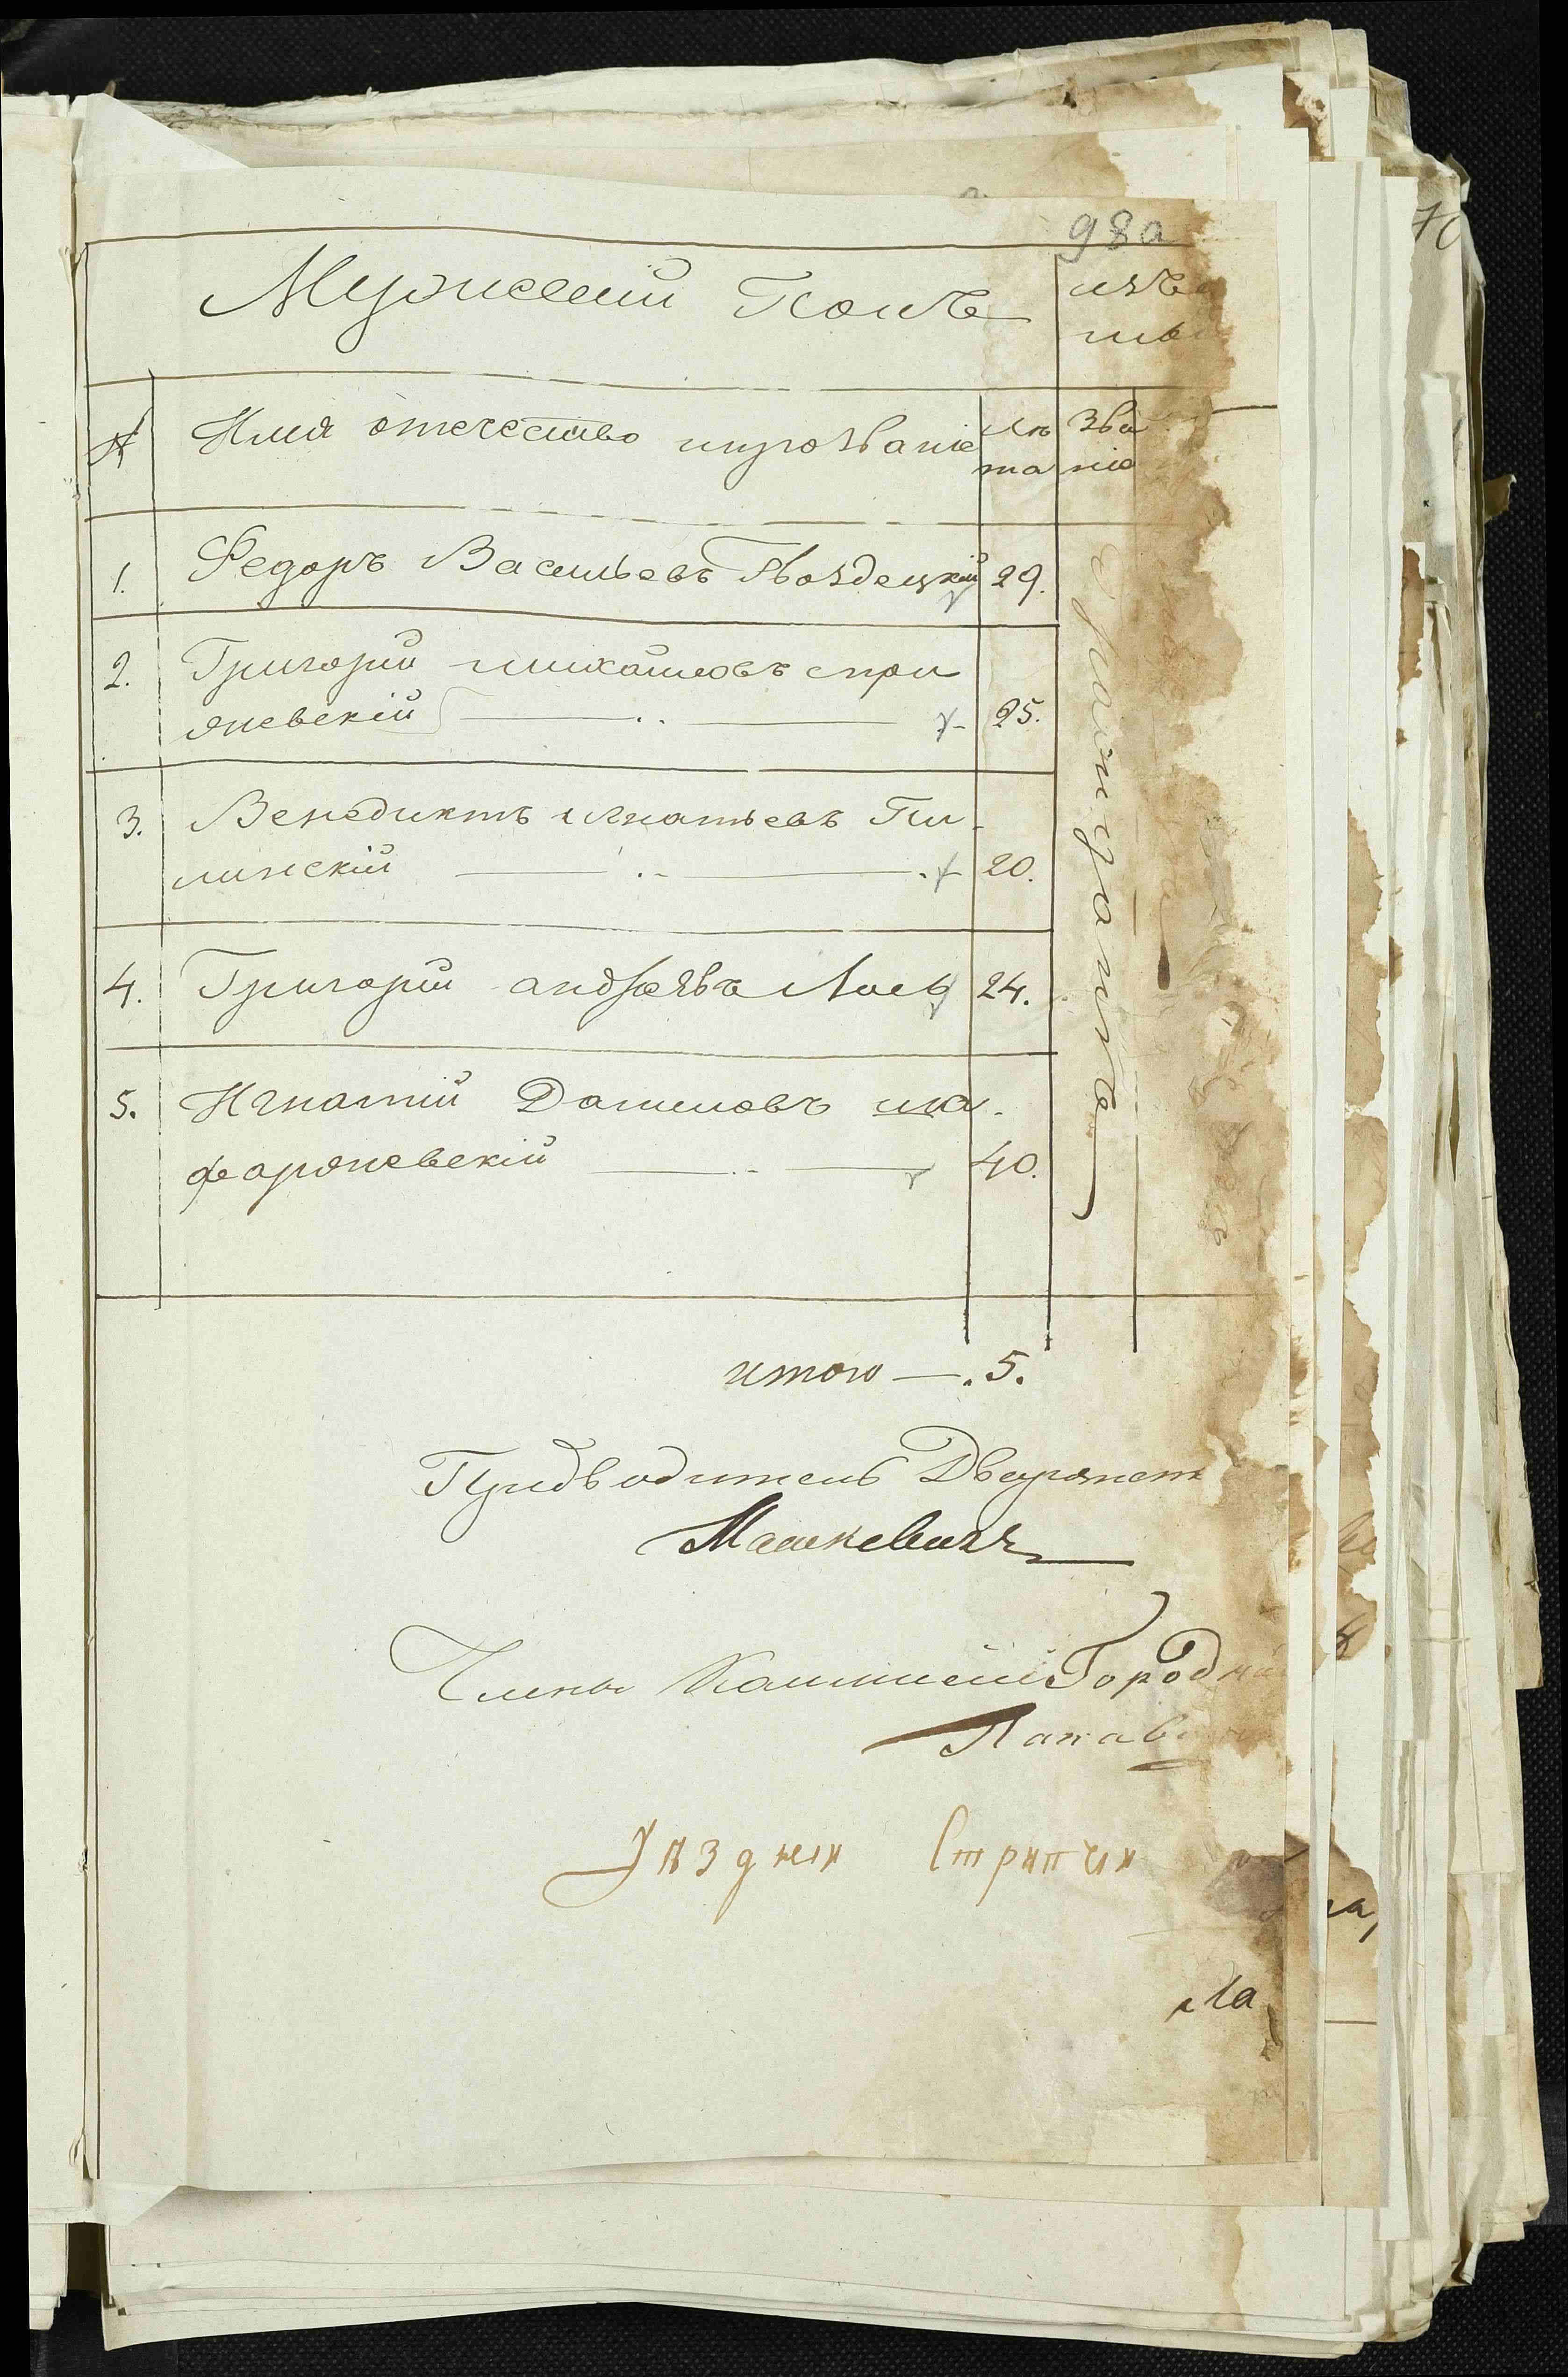 98а
Мужескій Полъ
№ Имя отечество ипрозваніе
лѣ
та
Зва
ніе
1. Федоръ Васильевъ Гвоздецкій 29.
2. Григорій михайловъ стри
яневскій 25.
3. Венедиктъ игнатьевъ Пи-
линскій 20.
4. Григорий андрѣевъ 24.
5. Игнатій Даниловъ ша-
фаряневскій 40.
итого —. 5.
Предводитель Дворянст
Машкевичъ
Члены Коммисіи Городни
Уездныи Стрипчи
Ла